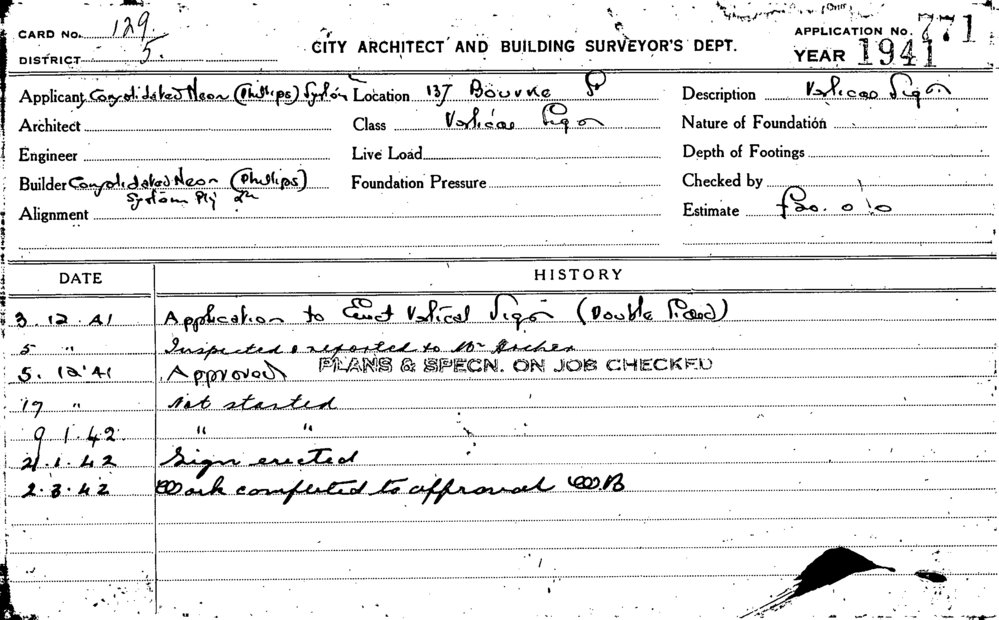 CARD No. 129
DISTRICT 5.
CITY ARCHITECT AND BUILDING SURVEYOR'S DEPT.
APPLICATION No. 771
YEAR 1941
Applicant Consolidated Neon (Phillips) System Location 137 Bourke St Description Vertical Sign
Architect Class Vertical Sign Nature of Foundation
Engineer Live Load Depth of Footings
Builder Consolidated Neon (Phillips) Foundation Pressure Checked by
System Pty
Alignment Estimate £20. 0/0
DATE HISTORY
3. 12. 41 Application to Erect Vertical Sign (Double Faced)
5 " Inspected & reported to Mr Archer
5. 12. 41 Approved PLANS & SPECN. ON JOB CHECKED
19 " Not started
9 1. 42 " "
21. 1. 42 Sign erected
2. 3. 42 Work completed to approval WB